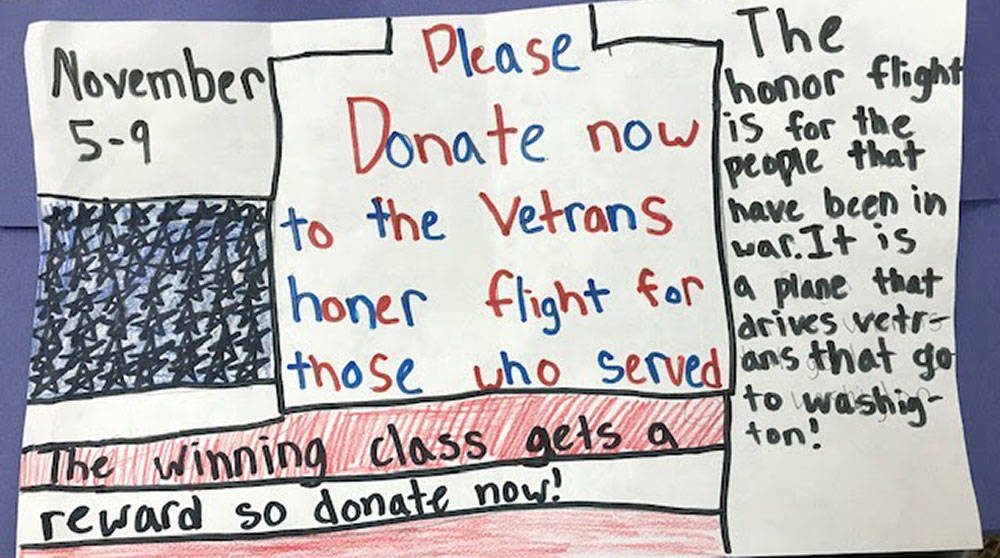 November
5-9
Please
Donate now
to the Vetrans
honer flight for
those who served
The winning class gets a
reward so donate now!
The
honor flight
is for the
people that
have been in
war. It is
a plane that
drives vetr-
ans that go
to washig-
ton!